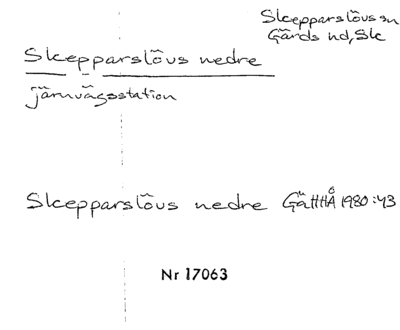 Skepparslövs sn
Gärds hd, Sk
Skepparslövs nedre
järnvägsstation
Skepparslövs nedre GäHHÅ 1980:43
Nr 17063